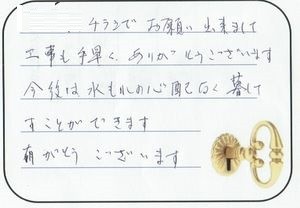 チラシで お願い 出来まして
工事も 手早く ありがとうございます
今後は 水もれの心配なく 暮して
すことができます
有がとう ございます